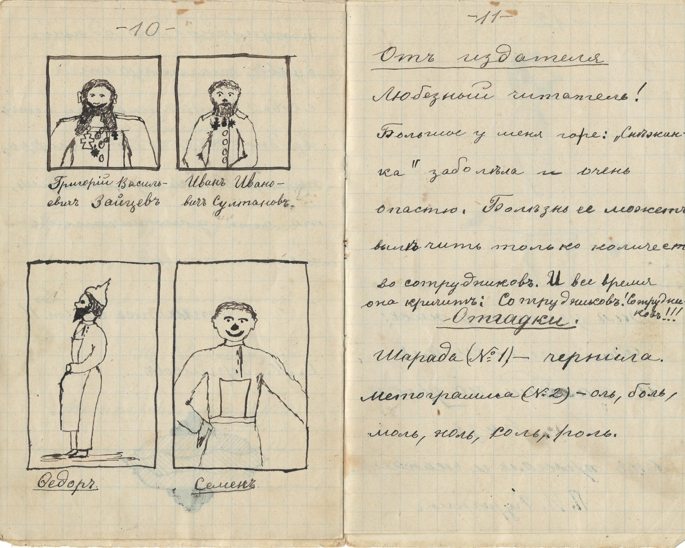 -10-
Григорій Василь-
евичъ Зайцевъ
Иванъ Ивано-
вичъ Султановъ.
Ѳедоръ
Семенъ
-11-
Отъ издателя
Любезный читатель!
Большое у меня горе: „Снѣжин-
ка" заболѣла и очень
опасно. Болѣзнь ее можетъ
вылѣчить только количест
во сотрудниковъ. И все время
она кричитъ: Сотрудниковъ! Сотрудни
ковъ!!!
Отгадки.
Шарада (№1) — чернила.
Метограмма (№2) – оль, боль,
моль, ноль, соль, роль.